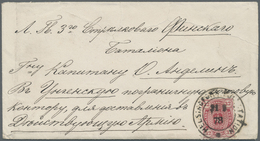 Л. П. 3го Стрѣлковаго Финскаго
Баталіона
Гну Капитану О. Анделинъ.
Въ Унгенскую пограничную
контору, для доставленія въ
Дѣйствующую Армію.
78